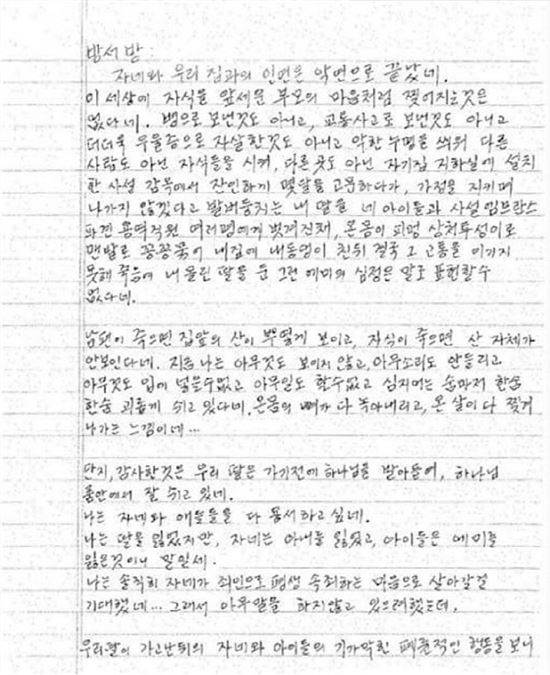 방서방:
자네와 우리 집과의 인연은 악연으로 끝났네.
이 세상에 자식을 앞세운 부모의 마음처럼 찢어지는것은
없다네. 병으로 보낸것도 아니고, 교통사고로 보낸것도 아니고
더더욱 우울증으로 자살한것도 아니고 악한 누명을 씌워 다른
사람도 아닌 자식들을 시켜, 다른곳도 아닌 자기집 지하실에 설치
한 사설 감옥에서 잔인하게 몇달을 고문하다가, 가정을 지키며
나가지 않겠다고 발버둥치는 내 딸을 네 아이들과 사설 엠브란스
파견 용역직원 여러명에게 벗겨진채, 온몸이 피멍 상처투성이로
맨발로 꽁꽁묶어 내집에 내동댕이 친뒤 결국 그 고통을 이기지
못해 죽음에 내몰린 딸을 둔 그런 에미의 심정은 말로 표현할수
없다네.
남편이 죽으면 집앞의 산이 뿌옇게 보이고, 자식이 죽으면 산 자체가
안보인다네. 지금 나는 아무것도 보이지 않고, 아무소리도 안들리고
아무것도 입에 넣을수없고 아무일도 할수없고 심지어는 숨마저 한숨
한숨 괴롭게 쉬고 있다네. 온몸의 뼈가 다 녹아내리고, 온 살이 다 찢겨
나가는 느낌이네...
단지, 감사한것은 우리 딸은 가기전에 하나님을 받아들여, 하나님
품안에서 잘 쉬고 있네.
나는 자네와 애들을 다 용서하고 싶네.
나는 딸을 잃었지만, 자네는 아내를 잃었고, 아이들은 에미를
잃은것이니 말일세.
나는 솔직히 자네가 죄인으로 평생 속죄하는 마음으로 살아갈걸
기대했네... 그래서 아무일을 하지않고 있으려했는데,
우리딸이 가고난뒤의 자네와 아이들의 기가막힌 패륜적인 행동을 보니